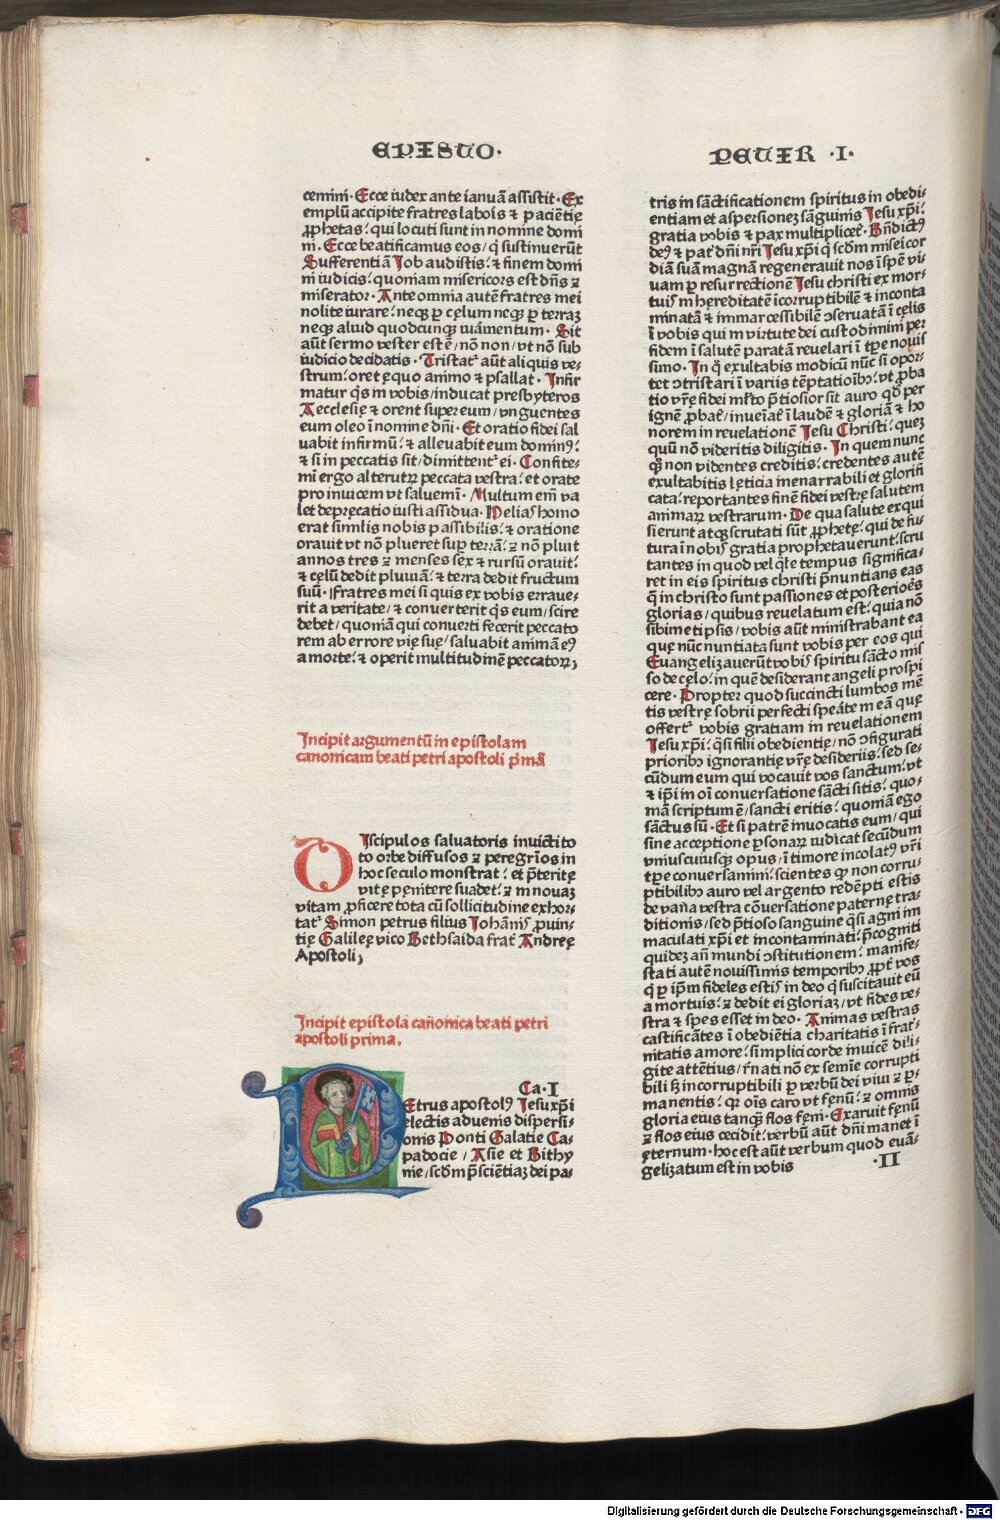 EPISTO·
cemini· Ecce iudex ante ianuā assistit· Ex
emplū accipite fratres laboris ⁊ paciētię
ꝓphetas: qui locuti sunt in nomine domi
ni· Ecce beatificamus eos/ q̇ sustinuerūt
Sufferentiā Job audistis: ⁊ finem domi
ni iudicis: quoniam misericors est dn̄s ⁊
miserator· Ante omnia autē fratres mei
nolite iurare: neqꝫ ꝑ cęlum neqꝫ ꝑ terraꝫ
neqꝫ aliud quodcunqꝫ iuramentum· Sit
aūt sermo vester est ē/ nō non/ vt nō sub
iudicio decidatis· Tristat᷑ aūt aliquis ve-
strum: oret ęquo animo ⁊ psallat· Infir
matur q̇s in vobis/ inducat presbyteros
Aecclesię ⁊ orent super eum/ vnguentes
eum oleo ī nomine dn̄i· Et oratio fidei sal
uabit infirmū: ⁊ alleuabit eum dominꝰ:
⁊ si in peccatis sit/ dimittent᷑ ei· Confite-
mi ergo alterutꝝ peccata vestra: et orate
pro inuicem vt saluemī· Multum em̄ va
let depręcatio iusti assidua· Helias homo
erat similis nobis passibilis: ⁊ oratione
orauit vt nō plueret suꝑ terrā: ⁊ nō pluit
annos tres ⁊ menses sex ⁊ rursū orauit:
⁊ cęlū dedit pluuiā: ⁊ terra dedit fructum
suū· Fratres mei si quis ex vobis erraue-
rit a veritate/ ⁊ conuerterit q̇s eum/ scire
debet/ quoniā qui conuerti fecerit peccato
rem ab errore vię suę/ saluabit animā eꝰ
a morte: ⁊ operit multitudinē peccatoꝝ;
Incipit argumentū in epistolam
canonicam beati petri apostoli pͥmā
DIscipulos saluatoris inuicti to
to orbe diffusos ⁊ peregrīos in
hoc seculo monstrat: et p̄teritę
vitę pęnitere suadet: ⁊ in nouaꝫ
vitam ꝓficere tota cū sollicitudine exhor-
tat᷑ Simon petrus filius Johānis ꝓuin-
tię Galileę vico Bethsaida frat᷑ Andreę
Apostoli;
Incipit epistola cañonica beati petri
apostoli prima.
Ca·I
PEtrus apostolꝰ Jesu xp̄i
electis aduenis dispersi-
onis Ponti Galatie Ca-
padocie/ Asie et Bithy
nie/ scd̄m p̄sciētiaꝫ dei pa-
PETIR ·I·
tris in sāctificationem spiritus in obedi-
entiam et aspersioneꝫ sāguinis Jesu xp̄i:
gratia vobis ⁊ pax multiplicet᷑· Bn̄dictꝰ
deꝰ ⁊ pat᷑ dn̄i nr̄i Jesu xp̄i q̇ scd̄m miseicor
diā suā magnā regenerauit nos ī spē vi-
uam ꝑ resurrectionē Jesu christi ex mor-
tuis in hęreditatē īcorruptibilē ⁊ inconta
minatā ⁊ immarcessibilē ↄseruatā ī cęlis
ī vobis qui in virtute dei custodimini per
fidem ī salutē paratā reuelari ī tp̄e nouis
simo· In q̇ exultabis modicū nūc si opor-
tet ↄtristari ī variis tēptatioībꝰ: vt ꝓba
tio vr̄ę fidei ml̄to p̄tiosior sit auro qd̄ per
ignē ꝓbat᷑/ inueīat᷑ ī laudē ⁊ gloriā ⁊ ho
norem in reuelationē Jesu Christi: queꝫ
quū nō videritis diligitis· In quem nunc
q̄ꝫ non videntes creditis: credentes autē
exultabitis lęticia inenarrabili et glorifi
cata: reportantes finē fidei vestrę salutem
animaꝝ vestrarum· De qua salute exqui
sierunt atqꝫ scrutati sūt ꝓphetę: qui de fu-
tura ī nobis gratia prophetauerunt: scru
tantes in quod vel q̄le tempus significa-
ret in eis spiritus christi p̄nuntians eas
q̄ in christo sunt passiones et posterioēs
glorias/ quibus reuelatum est: quia nō
sibimetipsis/ vobis aūt ministrabant ea
quę nūc nuntiata sunt vobis per eos qui
Euangelizauerūt vobis spiritu sācto mis
so de cęlo: in quē desiderant angeli prospi
cere· Propter quod succincti lumbos mē
tis vestrę sobrii perfecti speāte in eā quę
offert᷑ vobis gratiam in reuelationem
Jesu xp̄i: q̄si filii obedientię/ nō ↄfigurati
prioribꝰ ignorantię vr̄ę desideriis: sed se-
cūdum eum qui vocauit vos sanctum: vt
⁊ ip̄i in oī conuersatione sācti sitis: quo-
niā scriptum ē/ sancti eritis: quoniā ego
sāctus sū· Et si patrē inuocatis eum/ qui
sine acceptione ꝑsonaꝝ iudicat secūdum
vniuscuiusqꝫ opus/ ī timore incolatꝰ vr̄i
tp̄e conuersamini: scientes qꝫ non corru-
ptibilibꝰ auro vel argento redēpti estis
de vana vestra cōuersatione paternę tra-
ditionis/ sed p̄tioso sanguine q̄si agni im
maculati xp̄i et incontaminati: p̄cogniti
quideꝫ an̄ mundi ↄstitutionem: manife-
stati autē nouissimis temporibꝰ ꝓpt᷑ vos
q̇ ꝑ ip̄m fideles estis in deo q̇ suscitauit eū
a mortuis: ⁊ dedit ei gloriaꝫ/ vt fides ve-
stra ⁊ spes esset in deo· Animas vestras
castificātes ī obediētia charitatis ī frat᷑-
nitatis amore: simplici corde inuicē dili-
gite attētius/ rn̄ati nō ex semie corrupti
bili sꝫ incorruptibili ꝑ verbū dei viui ⁊ ꝑ-
manentis: qꝛ oīs caro vt fęnū: ⁊ omnis
gloria eius tanqꝫ flos fęni· Exaruit fęnū
⁊ flos eius cecidit: verbū aūt dn̄i manet ī
ęternum· hoc est aūt verbum quod euā-
gelizatum est in vobis ·II
Digitalisierung gefördert durch die Deutsche Forschungsgemeinschaft - DFG